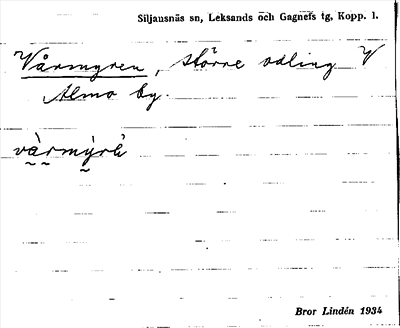 Siljansnäs sn, Leksands och Gagnefs tg, Kopp. l.
Vårmyren, större odling V
Almo by.
vàrmýrè
Bror Lindén 1934